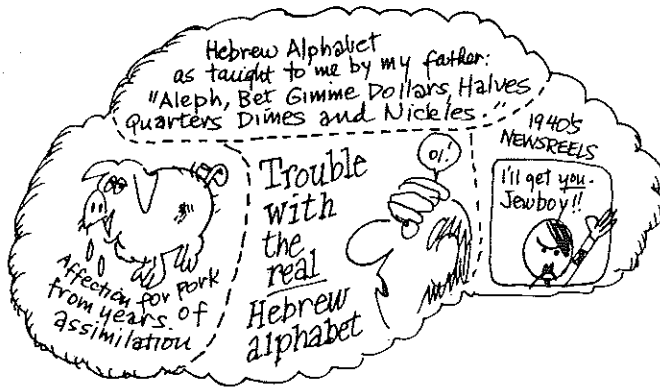 Hebrew Alphabet
as taught to me by my father:
"Aleph, Bet Gimme Dollars, Halves
Quarters Dimes and Nickles."
Affection for Pork
from years of
assimilation
Trouble
with
the
real
Hebrew
alphabet
OI!
1940's
NEWSREELS
I'll get you.
Jewboy!!